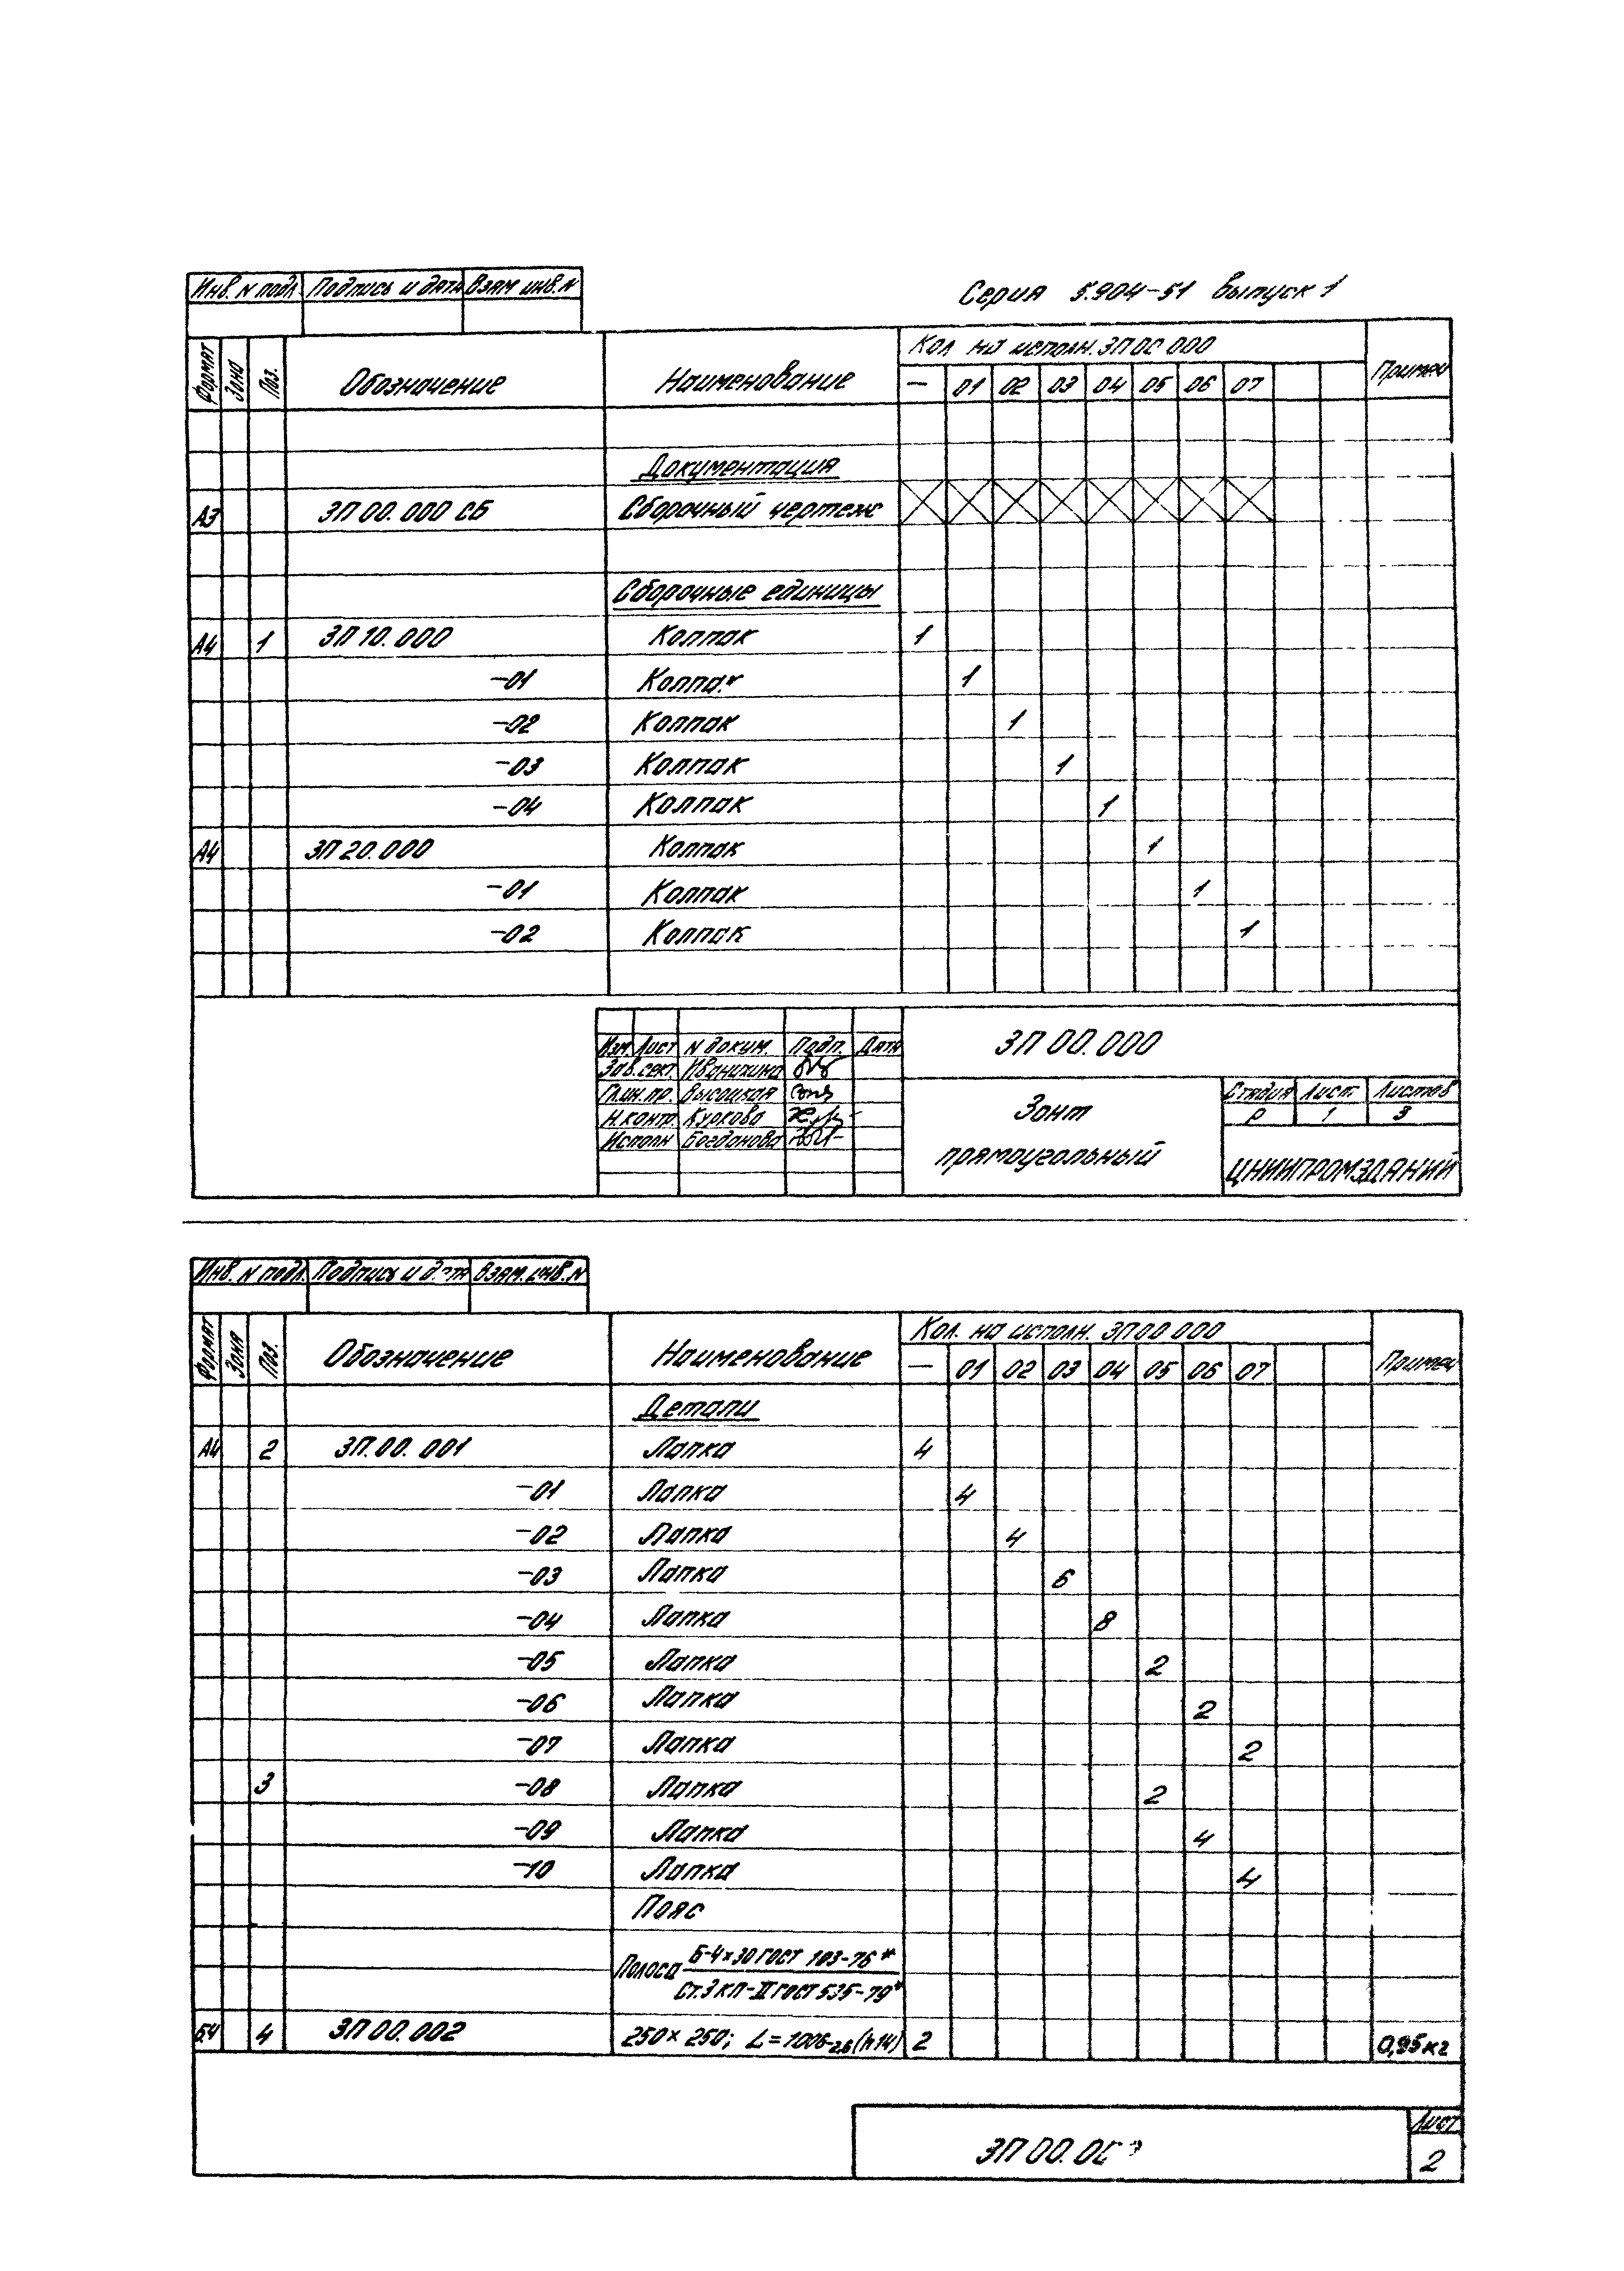 Серия 5.904-51 выпуск 1
Инв. N подл. Подпись и дата Взам инв. N
Формат Зона Поз. Обозначение Наименование Кол на исполн. ЗП 00 000 Примеч
– 01 02 03 04 05 06 07
Документация
А3 ЗП 00.000 СБ Сборочный чертеж
Сборочные единицы
А4 1 ЗП 10.000 Колпак 1
-01 Колпак 1
-02 Колпак 1
-03 Колпак 1
-04 Колпак 1
А4 ЗП 20.000 Колпак 1
-01 Колпак 1
-02 Колпак 1
ЗП 00.000
Изм Лист N докум. Подп. Дата
Зав. сект. Иванихина
Гл.ин.пр. Высоцкая
Н.контр. Куркова
Исполн Богданова
Зонт
прямоугольный
Стадия Лист Листов
Р 1 3
ЦНИИПРОМЗДАНИЙ
Инв. N подл. Подпись и дата Взам. инв. N
Формат Зона Поз. Обозначение Наименование Кол. на исполн. ЗП 00 000 Примеч
– 01 02 03 04 05 06 07
Детали
А4 2 ЗП.00.001 Лапка 4
-01 Лапка 4
-02 Лапка 4
-03 Лапка 6
-04 Лапка 8
-05 Лапка 2
-06 Лапка 2
-07 Лапка 2
3 -08 Лапка 2
-09 Лапка 4
-10 Лапка 4
Пояс
Полоса Б-4×30 ГОСТ 103-76*
Ст.3 кп-II ГОСТ 535-79*
БЧ 4 ЗП 00.002 250×250; L=1006-2,6 (h14) 2 0,95 кг
ЗП 00.
Лист
2